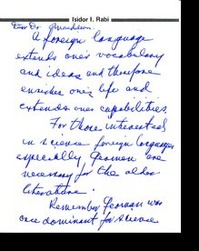 Isidor I. Rabi
Dear Dr.
A foreign language
extends one's vocabulary
and ideas and therefore
enriches one's life and
extends ones capabilities.
For those interested
in science foreign languages
especially, German are
necessary for the older
literature.
Remember German was
one dominant for science